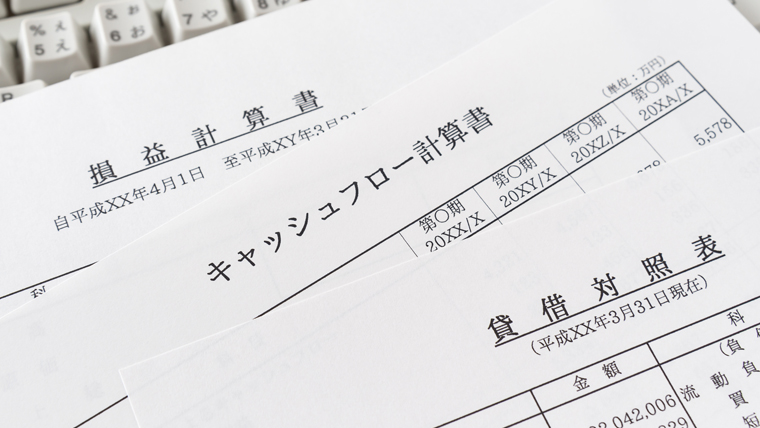 % え
5 え
& お
6 お
7 や
損益計算書
自平成XX年4月1日 至平成XY年3月31日
キャッシュフロー計算書
(単位:万円)
第〇期 第〇期 第〇期 第〇期
20XX/X 20XY/X 20XZ/X 20XA/X
5,578
貸借対照表
(平成XX年3月31日現在)
金額 科
(負
流動負
042,006 買
短